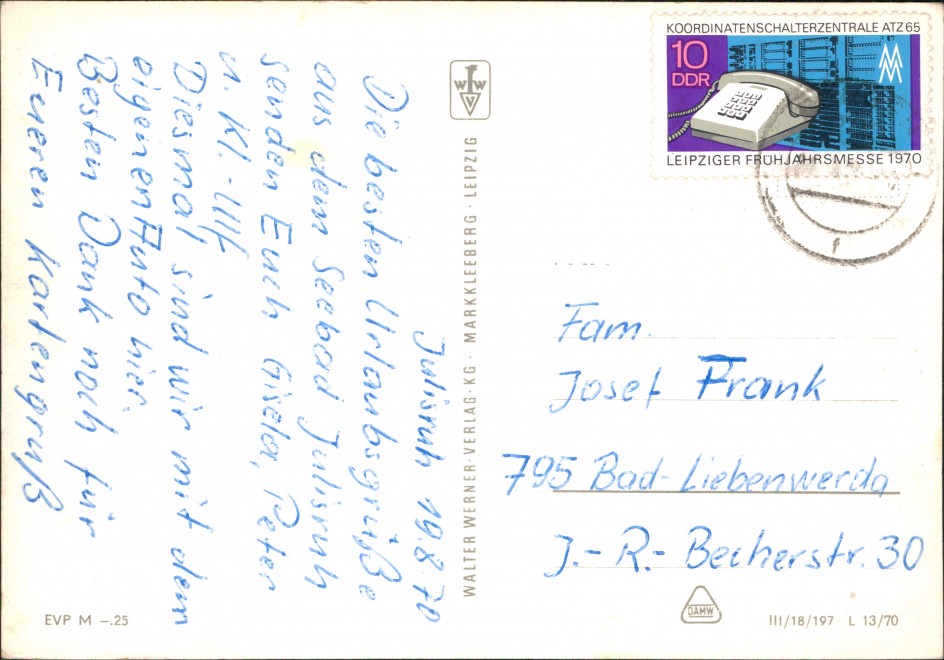 Julisruh 19.8.70
Die besten Urlaubsgrüße
aus dem Seebad Julisruh
senden Euch Gisela, Peter
u. Kl.-Ulf.
Diesmal sind wir mit dem
eigenen Auto hier.
Besten Dank noch für
Eueren Kartengruß
EVP M –.25
WALTER WERNER-VERLAG·KG· MARKKLEEBERG · LEIPZIG
W W V
KOORDINATENSCHALTERZENTRALE ATZ 65
10
DDR
MM
LEIPZIGER FRÜHJAHRSMESSE 1970
f
Fam.
Josef Frank
795 Bad-Liebenwerda
J.-R.-Becherstr. 30
DAMW
III/18/197 L 13/70